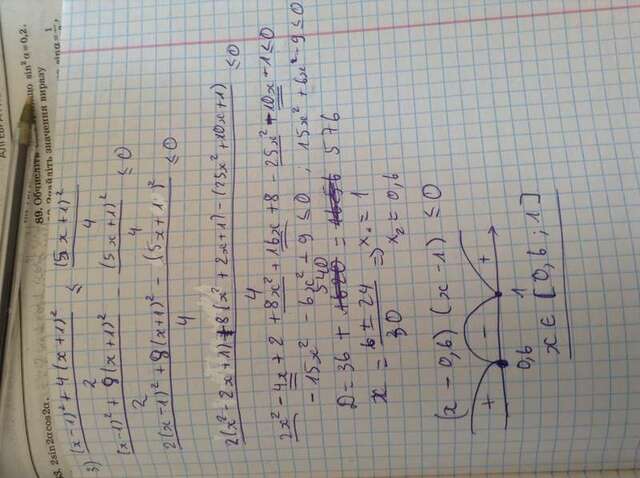 89. Обчисліть
sin²α = 0,2.
Знайдіть значення виразу
2sin2αcos2α.
3) ((x-1)² + 4(x+1)²) / 2 ≤ (5x+1)² / 4
((x-1)² + 8(x+1)²) / 2 - (5x+1)² / 4 ≤ 0
(2(x-1)² + 8(x+1)² - (5x+1)²) / 4 ≤ 0
(2(x²-2x+1) + 8(x²+2x+1) - (25x²+10x+1)) / 4 ≤ 0
2x² - 4x + 2 + 8x² + 16x + 8 - 25x² - 10x - 1 ≤ 0
-15x² - 6x² + 9 ≤ 0 ; 15x² + 6x² - 9 ≤ 0
D = 36 + 540 = 576
x = (6 ± 24) / 30 => x₁ = 1
x₂ = 0,6
(x - 0,6)(x - 1) ≤ 0
+ - +
0,6 1
x ∈ [0,6 ; 1]